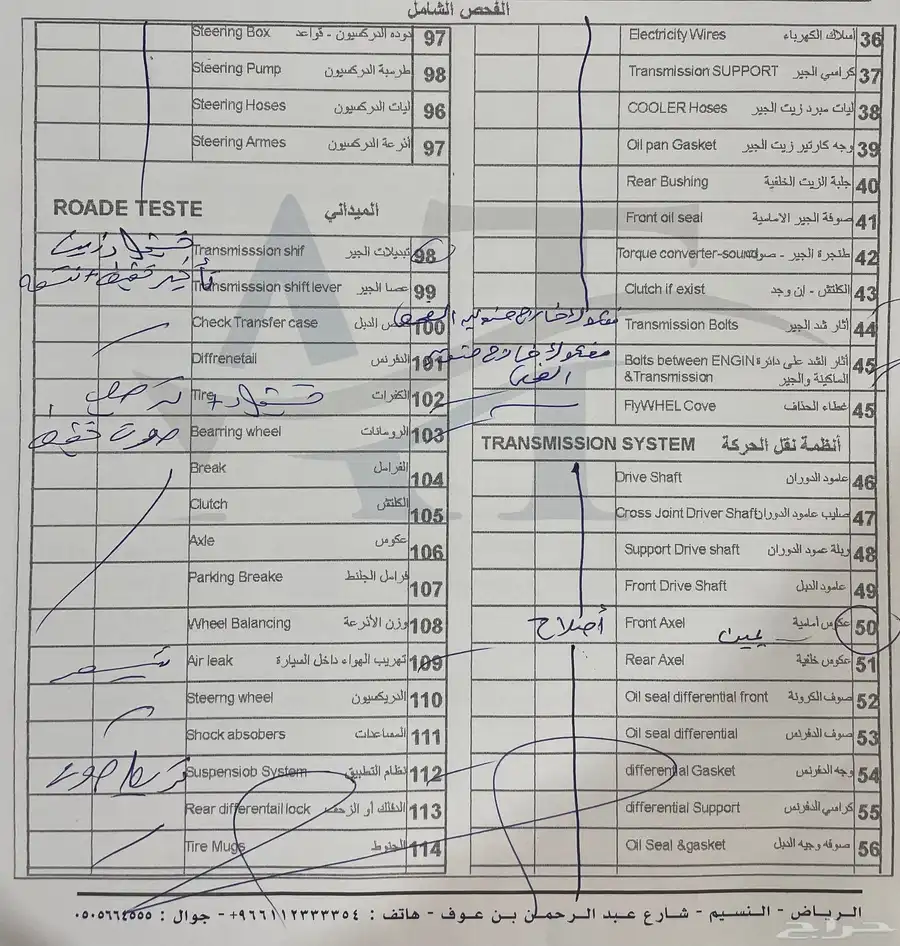 الفحص الشامل
36 أسلاك الكهرباء Electricity Wires
37 كراسي الجير Transmission SUPPORT
38 ليات مبرد زيت الجير COOLER Hoses
39 وجه كارتير زيت الجير Oil pan Gasket
40 جلبة الزيت الخلفية Rear Bushing
41 صوفة الجير الامامية Front oil seal
42 طنجرة الجير - صوت Torque converter-sound
43 الكلتش - إن وجد Clutch if exist
44 أثار شد الجير Transmission Bolts
45 أثار الشد على دائرة الماكينة والجير Bolts between ENGIN &Transmission
45 غطاء الحذاف FlyWHEL Cove
أنظمة نقل الحركة TRANSMISSION SYSTEM
46 عامود الدوران Drive Shaft
47 صليب عامود الدوران Cross Joint Driver Shaft
48 ريلة عمود الدوران Support Drive shaft
49 عامود الدبل Front Drive Shaft
50 عكوس أمامية Front Axel أصلاح
يمين
51 عكوس خلفية Rear Axel
52 صوف الكرونة Oil seal differential front
53 صوف الدفرنس Oil seal differential
54 وجه الدفرنس differential Gasket
55 كراسي الدفرنس differential Support
56 صوفه وجيه الدبل Oil Seal &gasket
97 دوده الدركسيون - قواعد Steering Box
98 طرمبة الدركسيون Steering Pump
96 ليات الدركسيون Steering Hoses
97 أذرعة الدركسيون Steering Armes
الميداني ROADE TESTE
98 تبديلات الجير Transmisssion shif
99 عصا الجير Transmisssion shift lever
100 الدبل Check Transfer case
101 الدفرنس Diffrenetail
102 الكفرات Tire
103 الرومانات Bearring wheel صوت خفيف
104 الفرامل Break
105 الكلتش Clutch
106 عكوس Axle
107 فرامل الجلنط Parking Breake
108 وزن الأذرعة Wheel Balancing
109 تهريب الهواء داخل السيارة Air leak
110 الدريكسيون Steerng wheel
111 المساعدات Shock absobers
112 نظام التطبيق Suspensiob System
113 الدفلك أو الزحف Rear differentail lock
114 الجنوط Tire Mugs
الرياض - النسيم - شارع عبد الرحمن بن عوف - هاتف : ٩٦٦١١٢٣٣٣٣٥٤+ - جوال : ٠٥٠٥٦٦٤٥٥٥
حراج